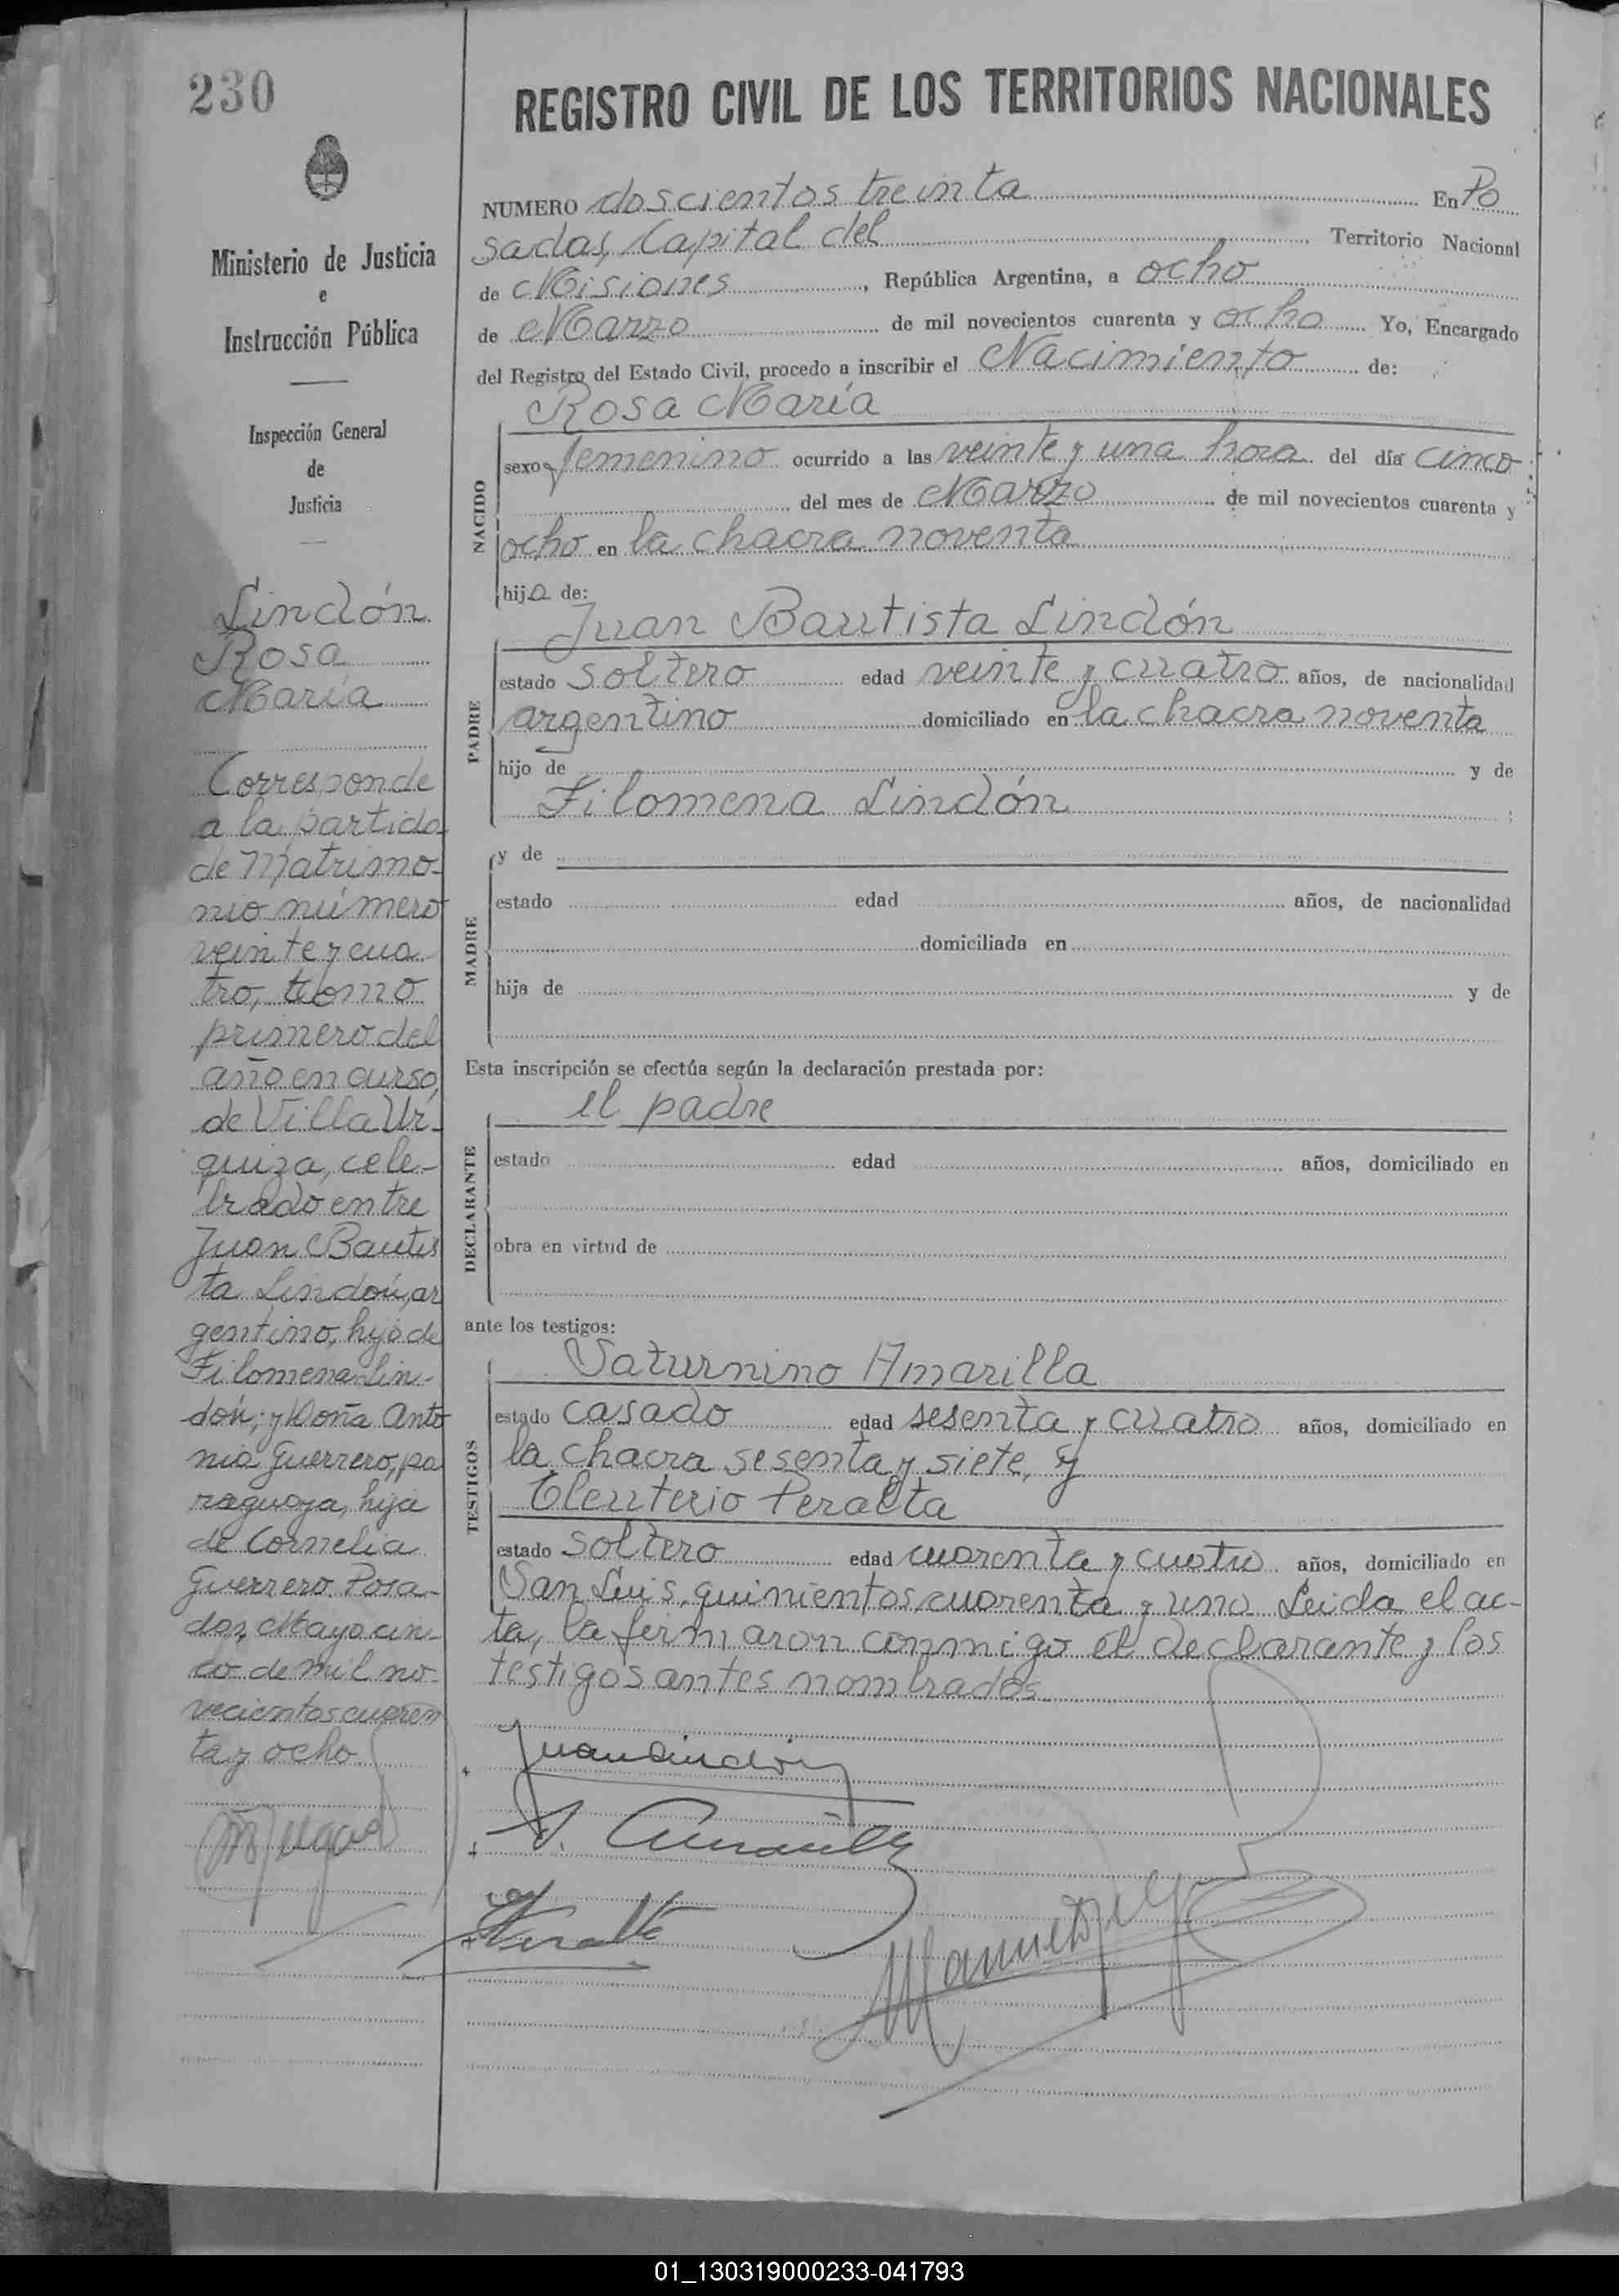 230
Ministerio de Justicia
e
Instrucción Pública
Inspección General
de
Justicia
Lindón
Rosa
María
Corresponde
a la partida
de Matrimo-
nio número
veinte y cua
tro, tomo
primero del
año en curso,
de Villa Ur-
quiza, cele-
brado entre
Juan Bautis
ta Lindón, ar
gentino, hijo de
Filomena Lin-
dón; y Doña Anto
nia Guerrero, pa
raguaya, hija
de Cornelia
Guerrero. Posa-
das, Mayo cin-
co de mil no-
vecientos cuaren
ta y ocho
REGISTRO CIVIL DE LOS TERRITORIOS NACIONALES
NUMERO doscientos treinta En Po
sadas, Capital del Territorio Nacional
de Misiones, República Argentina, a ocho
de Marzo de mil novecientos cuarenta y ocho Yo, Encargado
del Registro del Estado Civil, procedo a inscribir el Nacimiento de:
Rosa María
NACIDO
sexo femenino ocurrido a las veinte y una hora del día cinco
del mes de Marzo de mil novecientos cuarenta y
ocho en la chacra noventa
hija de:
Juan Bautista Lindón
PADRE
estado soltero edad veinte y cuatro años, de nacionalidad
argentino domiciliado en la chacra noventa
hijo de y de
Filomena Lindón
y de
MADRE
estado edad años, de nacionalidad
domiciliada en
hija de y de
Esta inscripción se efectúa según la declaración prestada por:
el padre
DECLARANTE
estado edad años, domiciliado en
obra en virtud de
ante los testigos:
Saturnino Amarilla
TESTIGOS
estado casado edad sesenta y cuatro años, domiciliado en
la chacra sesenta y siete, y
Eleuterio Peralta
estado soltero edad cuarenta y cuatro años, domiciliado en
San Luis, quinientos cuarenta y uno Leida el ac-
ta, la firmaron conmigo el declarante y los
testigos antes nombrados
Juan Lindón
S. Amarilla
Peralta
01_130319000233-041793